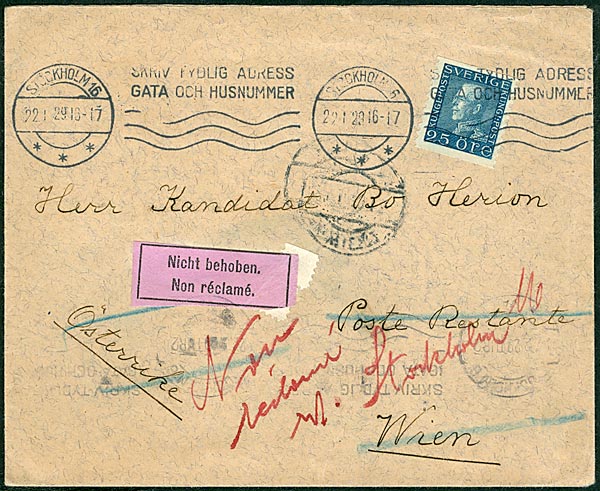 STOCKHOLM 16
22.1 29.16-17
SKRIV TYDLIG ADRESS
GATA OCH HUSNUMMER
STOCKHOLM 16
22.1 29.16-17
TYDLIG ADRESS
OCH HUSNUMMER
SVERIGE
25 ÖRE
Herr Kandidat Bo Herion
Nicht behoben.
Non réclamé.
Österrike
Poste Restante
Wien
Non
réclamé
rt. Stockholm